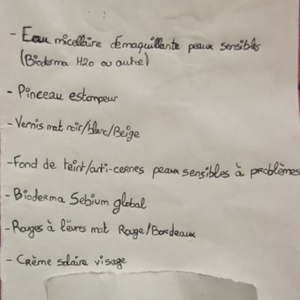 - Eau micellaire démaquillante peaux sensibles
(Bioderma H2O ou autre)
- Pinceau estompeur
- Vernis mat noir/blanc/Beige
- Fond de teint/anti-cernes peaux sensibles à problèmes
- Bioderma Sebium global
- Rouges à lèvres mat Rouge/Bordeaux
- Crème solaire visage